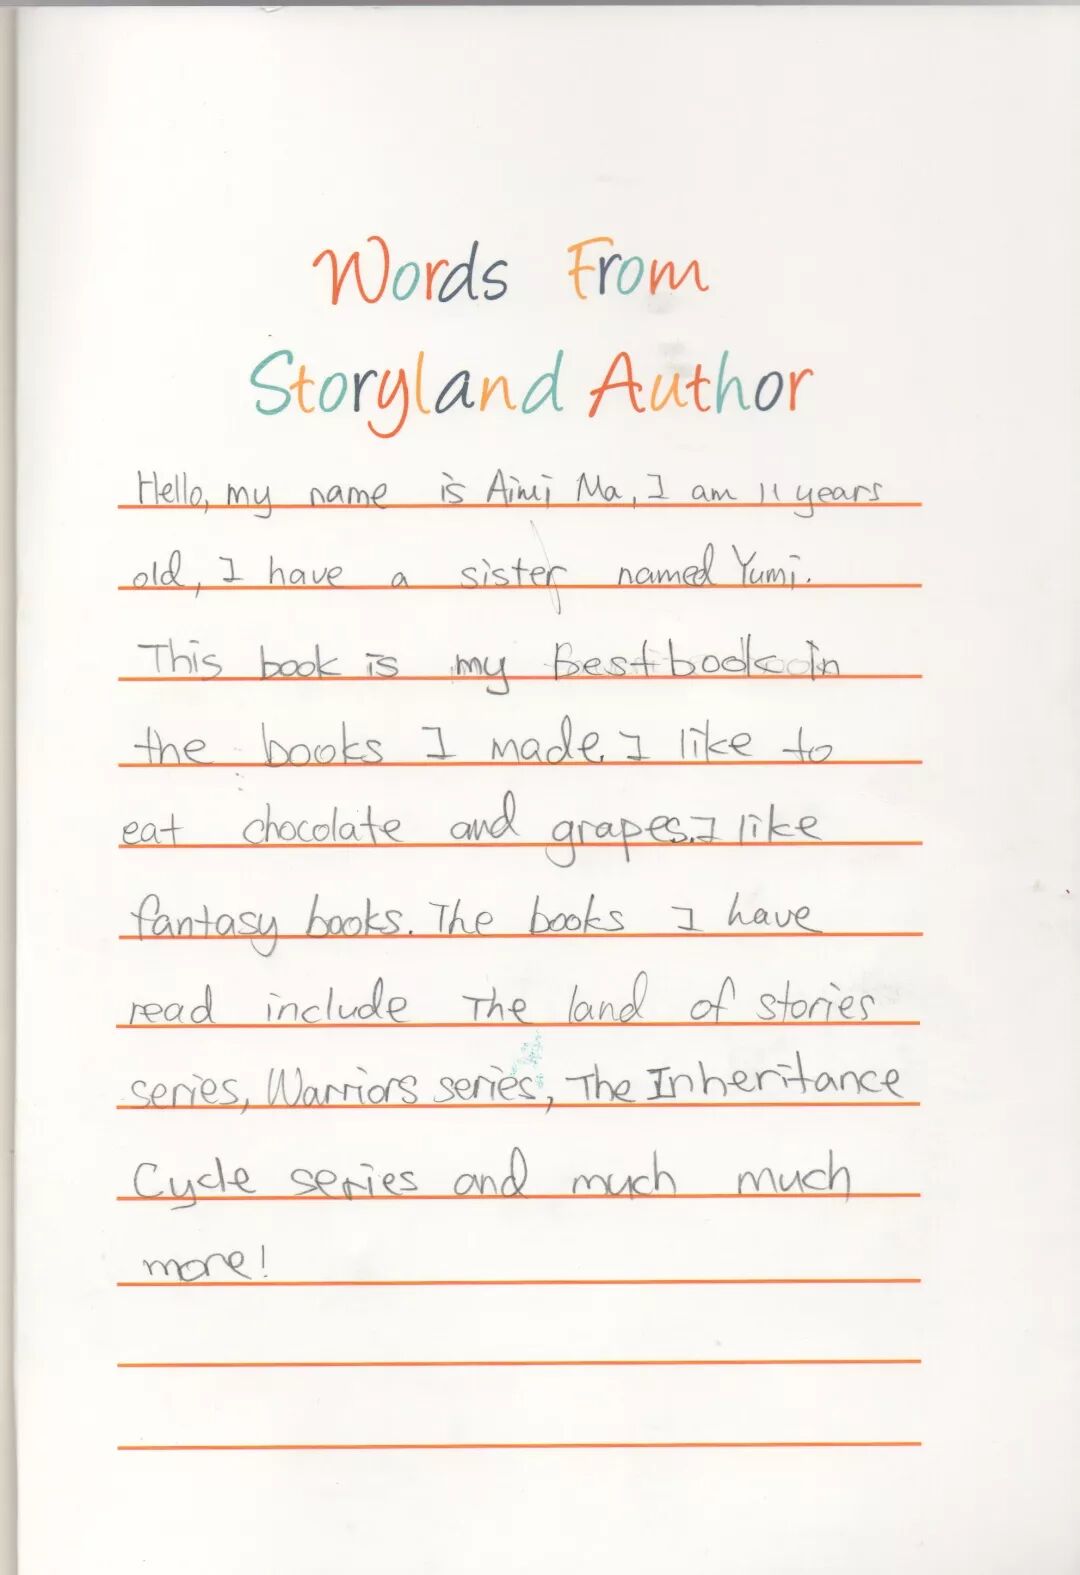 Words From
Storyland Author
Hello, my name is Aimi Ma, I am 11 years
old, I have a sister named Yumi.
This book is my Best book in
the books I made. I like to
eat chocolate and grapes. I like
fantasy books. The books I have
read include The land of stories
series, Warriors series, The Inheritance
Cycle series and much much
more!